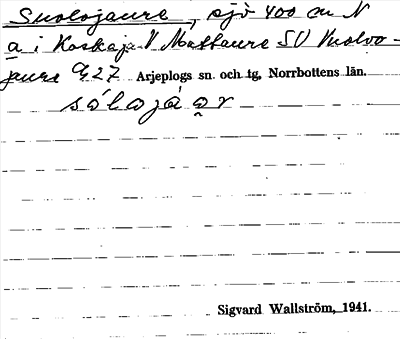 Suolojaure, sjö 400 m N
a i Kaskaja V Mattaure SV Vuolvo-
jaure G 27 Arjeplogs sn. och tg, Norrbottens län.
sálojáar
Sigvard Wallström, 1941.